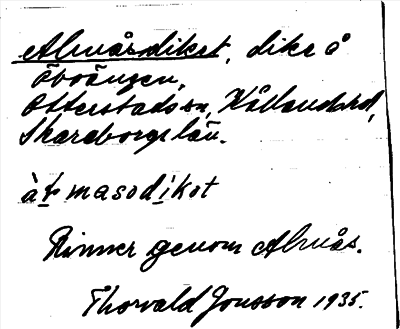 Almåsdiket, dike å
Öroängen,
Otterstads sn, Kållands hd,
Skaraborgs län.
àt masodikət
Rinner genom Almås.
Thorvald Jonsson 1935.